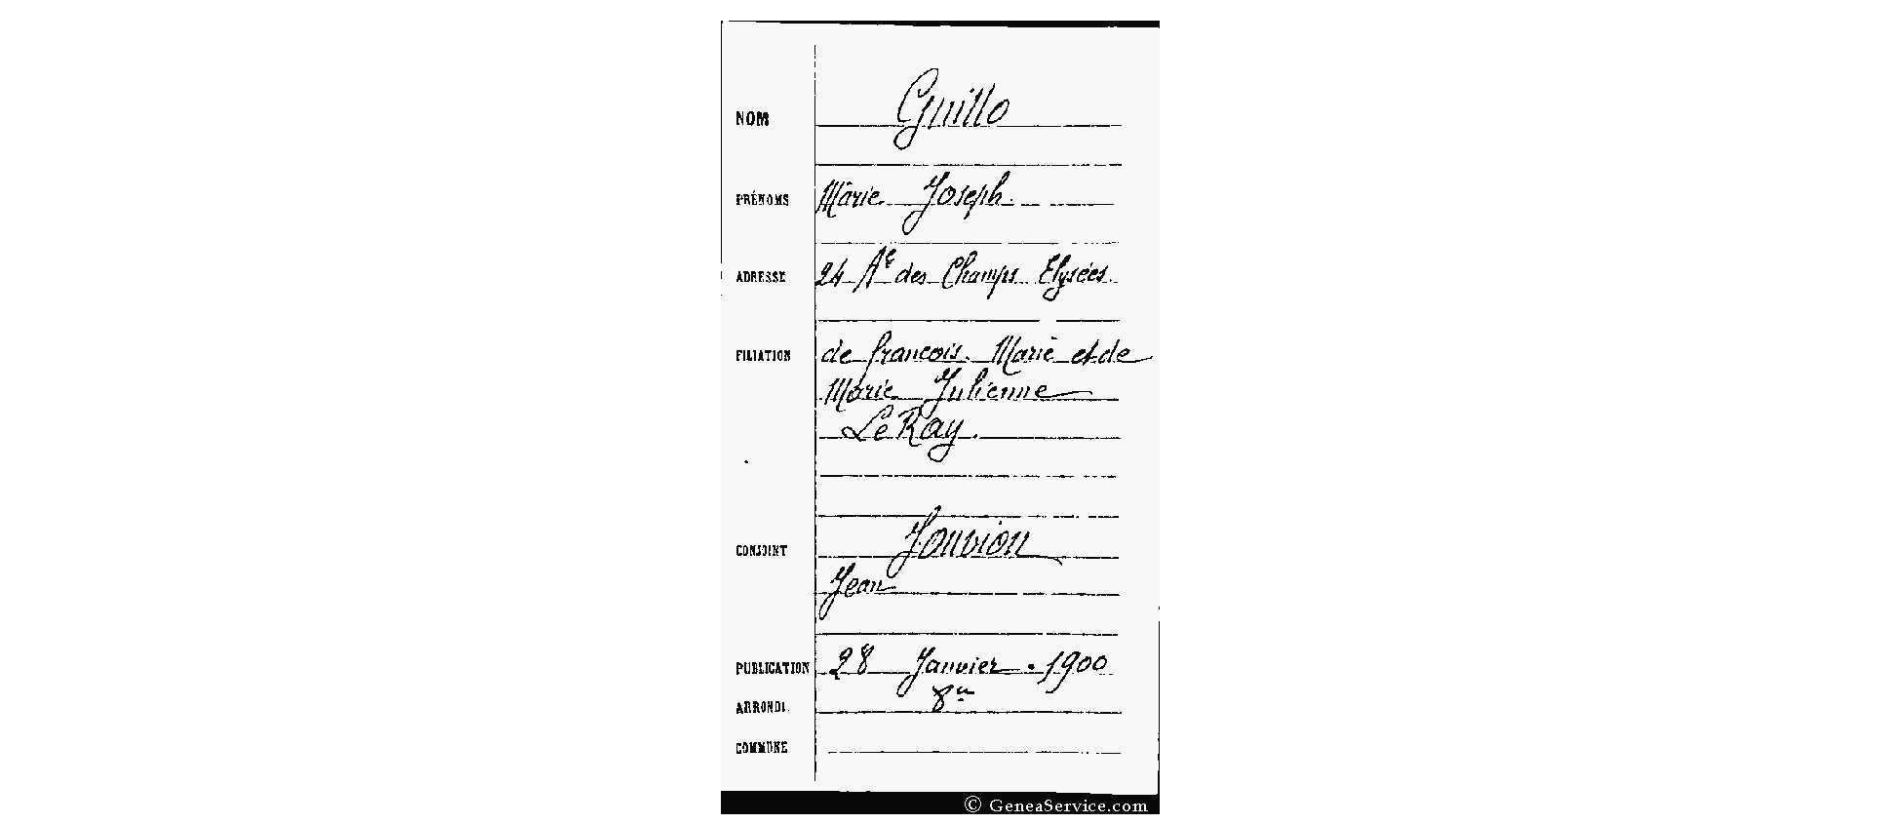 NOM Guillo
PRÉNOMS Marie Joseph.
ADRESSE 24 Ae des Champs Elysées.
FILIATION de francois. Marie et de
Marie Julienne
Le Ray.
CONJOINT Jouvion
Jean
PUBLICATION 28 Janvier . 1900
ARRONDt 8e
COMMUNE
© GeneaService.com